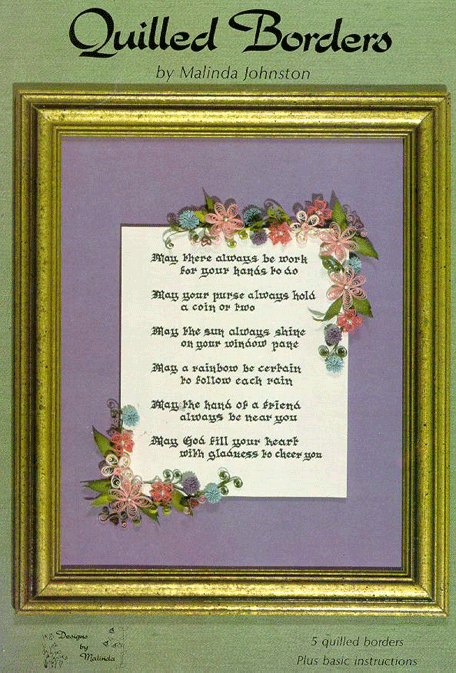 Quilled Borders
by Malinda Johnston
May there always be work
for your hands to do
May your purse always hold
a coin or two
May the sun always shine
on your window pane
May a rainbow be certain
to follow each rain
May the hand of a friend
always be near you
May God fill your heart
with gladness to cheer you
Designs
by
Malinda
5 quilled borders
Plus basic instructions